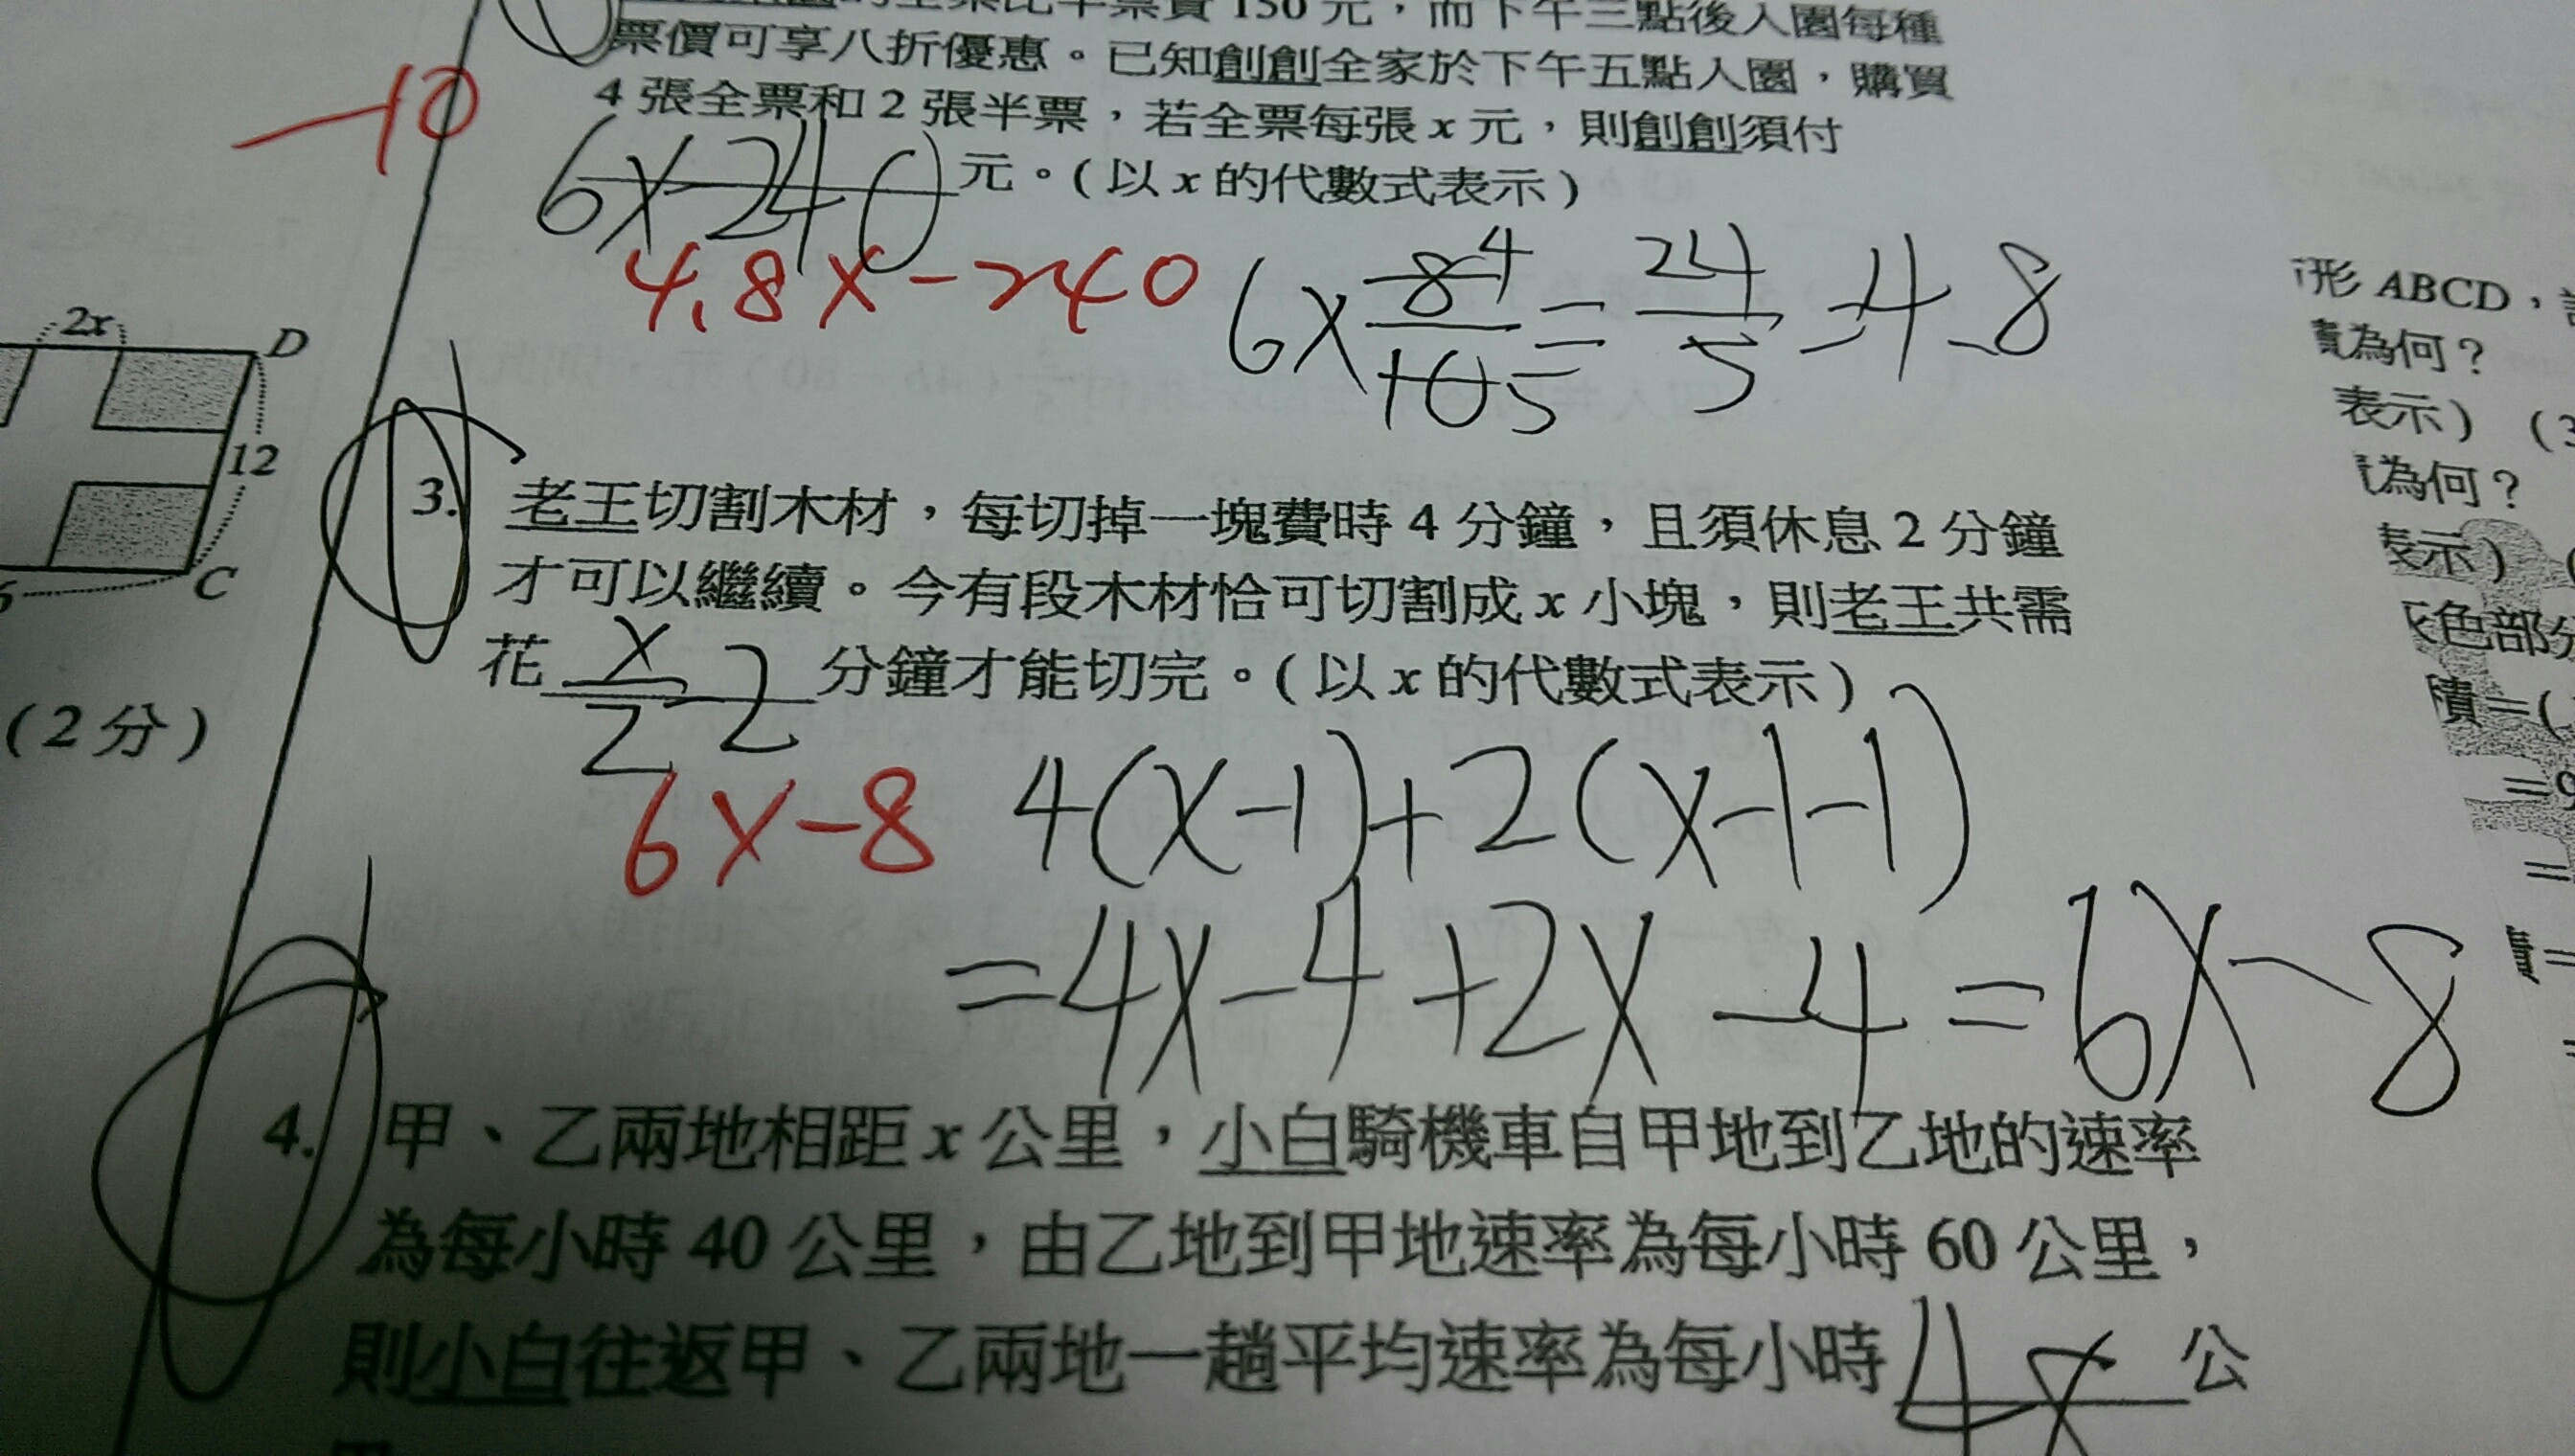 的全票比半票貴 150 元，而下午三點後入園每種
票價可享八折優惠。已知創創全家於下午五點入園，購買
4 張全票和 2 張半票，若全票每張 x 元，則創創須付
6x-240 元。(以 x 的代數式表示)
-10
4.8x-240
6×8/10 4/5=24/5=4.8
2x
D
12
C
(2分)
3. 老王切割木材，每切掉一塊費時 4 分鐘，且須休息 2 分鐘
才可以繼續。今有段木材恰可切割成 x 小塊，則老王共需
花 x/2-2 分鐘才能切完。(以 x 的代數式表示)
6x-8
4(x-1)+2(x-1-1)
=4x-4+2x-4=6x-8
4. 甲、乙兩地相距 x 公里，小白騎機車自甲地到乙地的速率
為每小時 40 公里，由乙地到甲地速率為每小時 60 公里，
則小白往返甲、乙兩地一趟平均速率為每小時 48 公
形 ABCD，
為何？
表示)
為何？
表示)
色部分
積=(